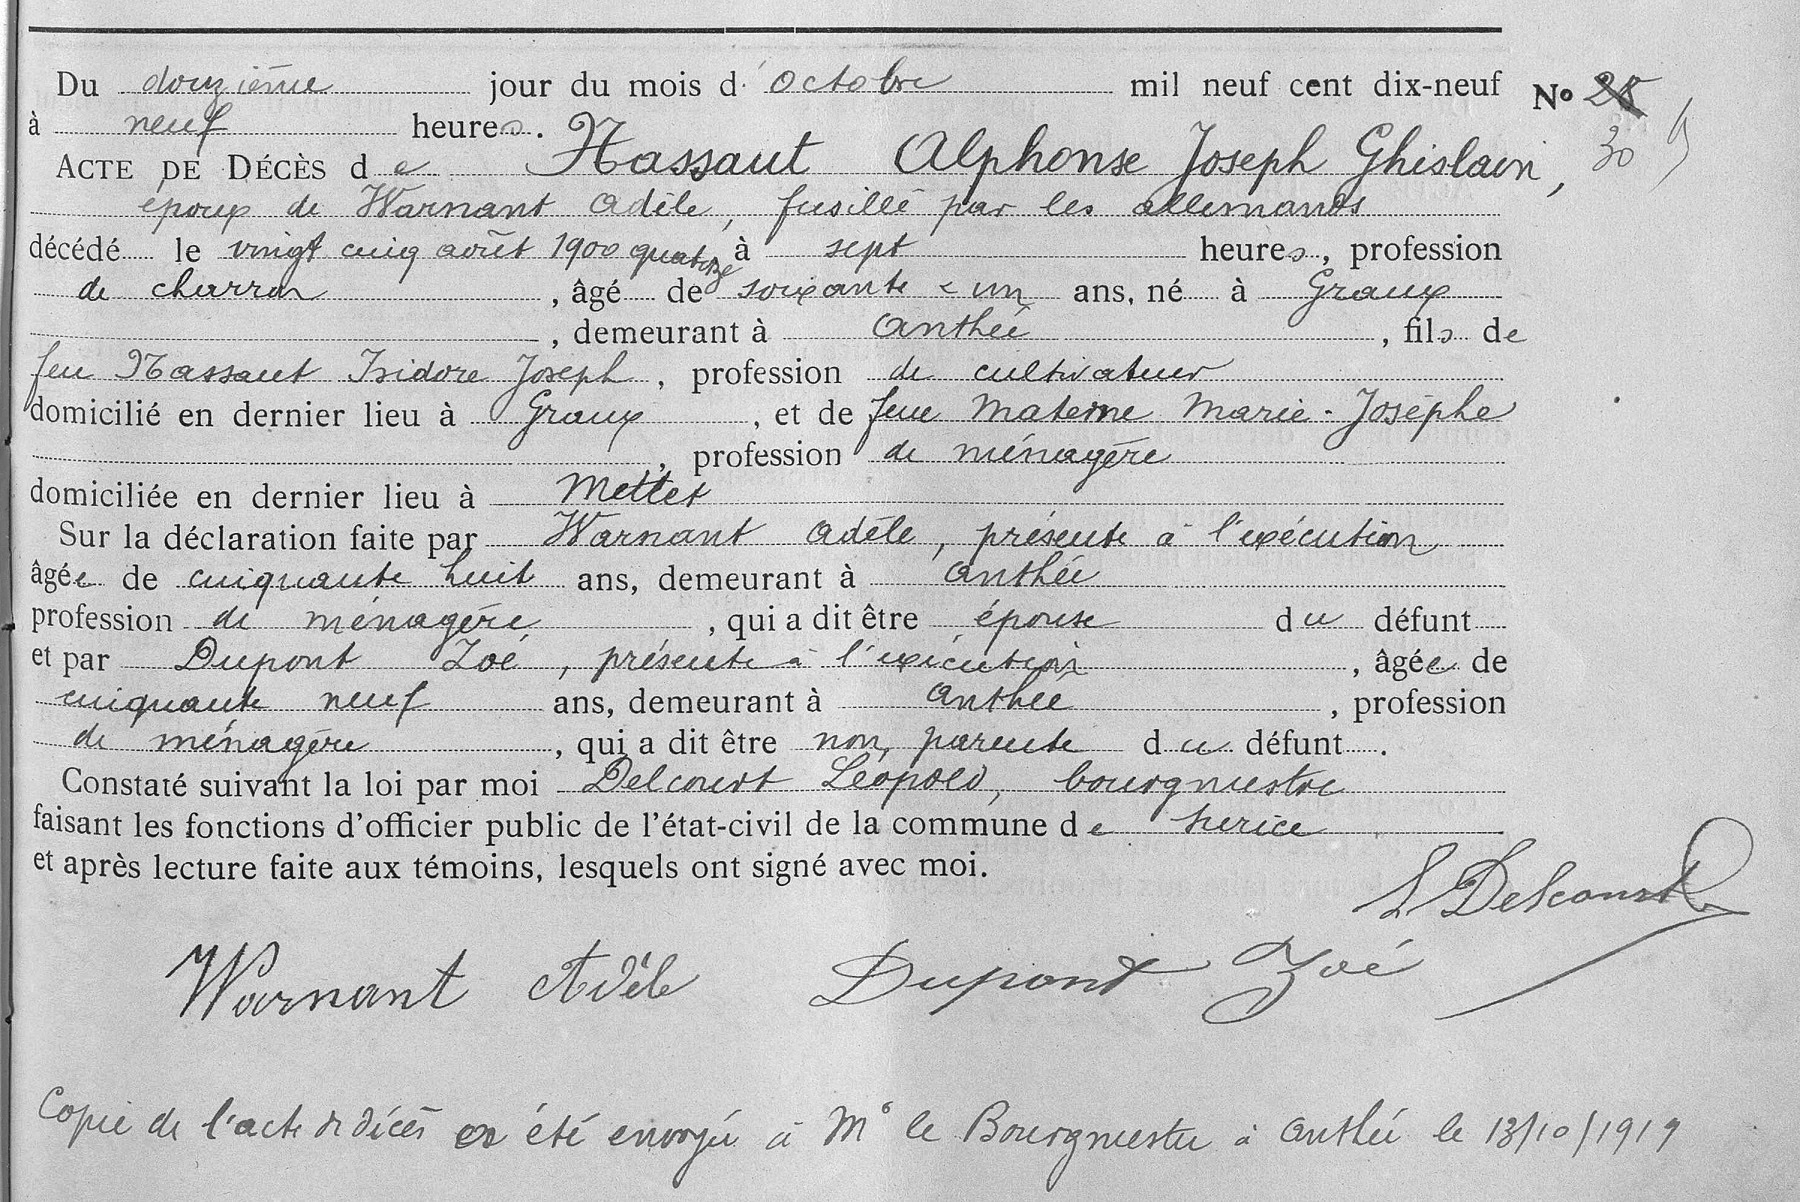 Du douzième jour du mois d'octobre mil neuf cent dix-neuf No 28
à neuf heures. 30
ACTE DE DÉCÈS de Massaut Alphonse Joseph Ghislain,
époux de Warnant Adèle, fusillé par les allemands
décédé le vingt cinq août 1900 quatorze à sept heures, profession
de charron, âgé de soixante e un ans, né à Graux
, demeurant à Anthée, fils de
feu Massaut Isidore Joseph, profession de cultivateur
domicilié en dernier lieu à Graux, et de feue Materne Marie-Josèphe
, profession de ménagère
domiciliée en dernier lieu à Mettet
Sur la déclaration faite par Warnant Adèle, présente à l'exécution
âgée de cinquante huit ans, demeurant à Anthée
profession de ménagère, qui a dit être épouse du défunt
et par Dupont Zoé, présente à l'exécution, âgée de
cinquante neuf ans, demeurant à Anthée, profession
de ménagère, qui a dit être non parente du défunt.
Constaté suivant la loi par moi Delcourt Léopold, bourgmestre
faisant les fonctions d'officier public de l'état-civil de la commune de Surice
et après lecture faite aux témoins, lesquels ont signé avec moi.
L Delcourt
Warnant Adèle Dupont Zoé
Copie de l'acte de décès a été envoyée à Mr le Bourgmestre à Anthée le 13/10/1919